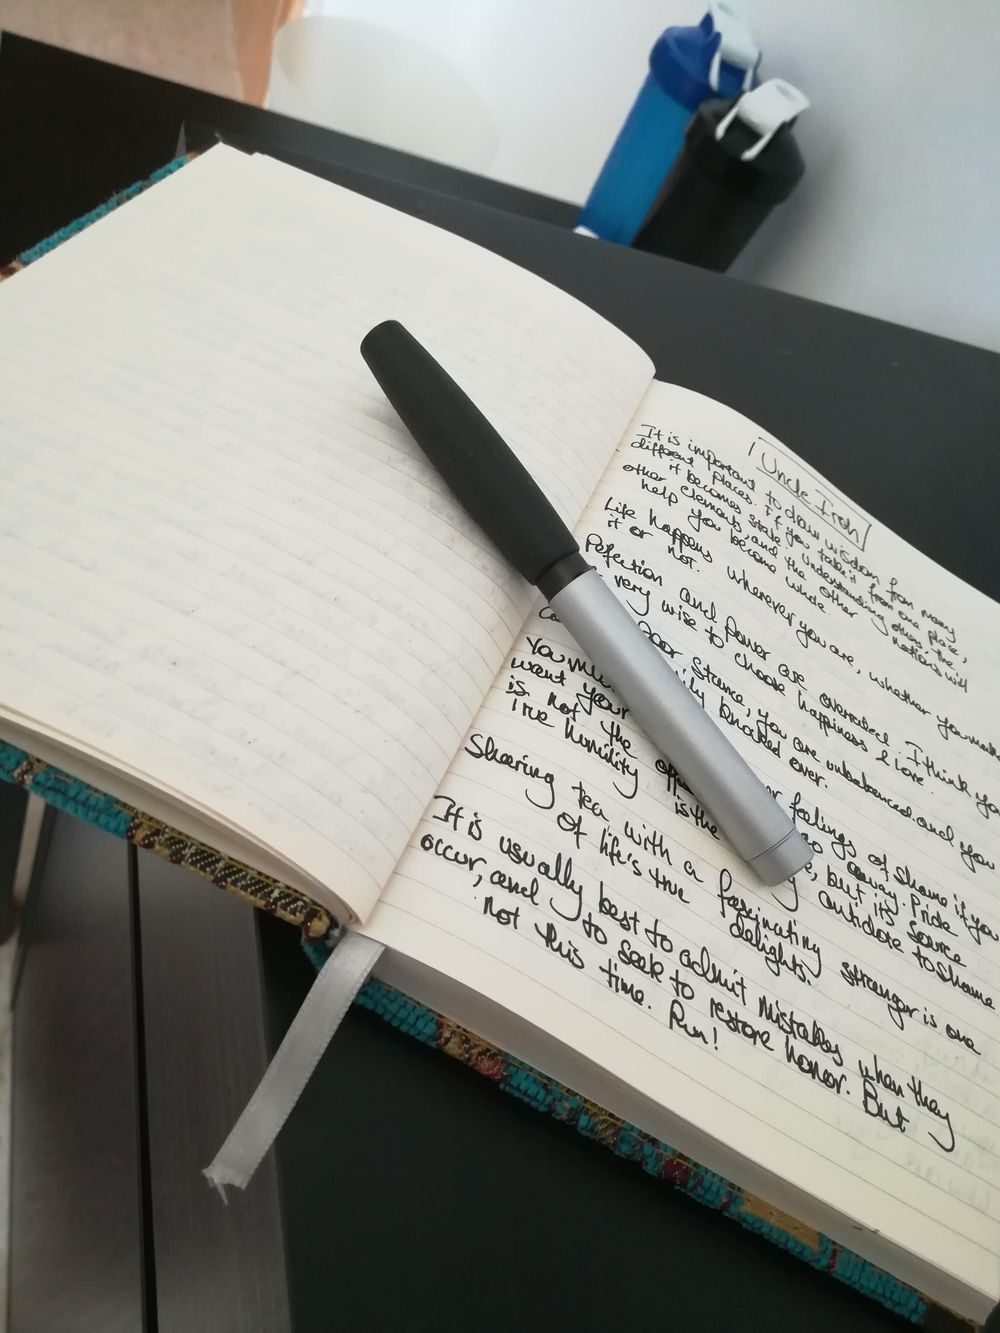 Uncle Iroh
It is important to draw wisdom from many
different places. If you take it from one place,
it becomes stale. Understanding others, the
other elements and the other nations will
help you become whole.
Life happens wherever you are, whether you make
it or not.
Pefection and power are overrated. I think you
very wise to choose happiness & love.
poor stance, you are unbalanced and you
knocked over.
You mu
want your feelings of shame if you
is not the oppo to away. Pride
true humility is the e, but its source
antidote to shame
Sharing tea with a fascinating stranger is one
of life's true delights.
It is usually best to admit mistakes when they
occur, and to seek to restore honor. But
not this time. Run!